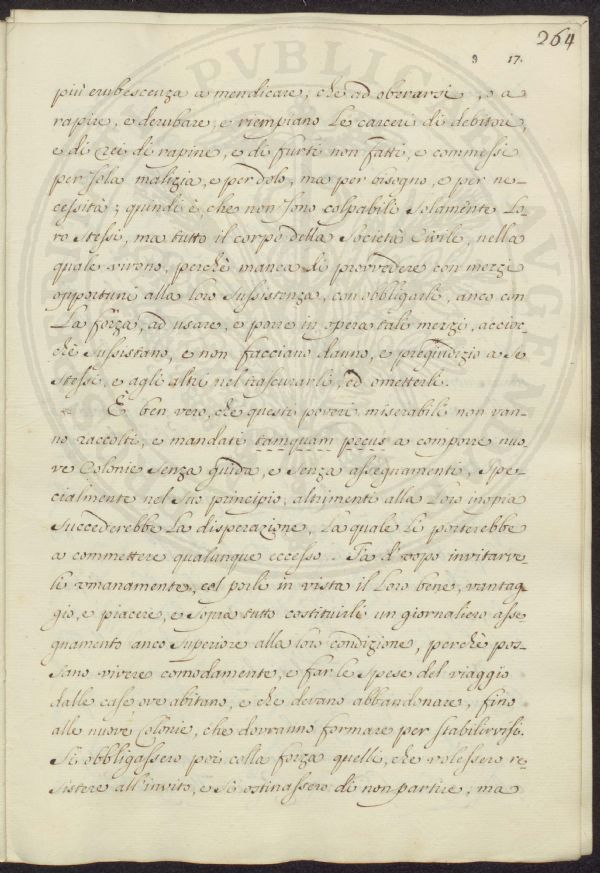 264
9 17.
più erubescenza a mendicare, che ad oborarsi, o a
rapire, e derubare, e riempiano le carceri di debitori,
e di rei di rapine, e di furti non fatti, e commessi
per sola malizia, e per dolo, ma per bisogno, e per ne-
cessità; quindi è che non sono colpabili solamente Lo-
ro stessi, ma tutto il corpo della Società Civile, nella
quale vivono, perchè manca di provvedere con mezzi
opportuni alla loro sussistenza, con obbligarli, anco con
La forza, ad usare, e porre in opera tali mezzi, accioc
chè sussistano, e non facciano danno, e pregiudizio a se
stessi, e agli altri nel trascurarli, ed ometterli.
E ben vero, che questi poveri miserabili non van-
no raccolti, e mandati tamquam pecus a comporre nuo-
ve Colonie senza guida, e senza assegnamenti, spe-
cialmente nel suo principio, altrimenti alla Loro inopia
succederebbe La disperazione, La quale Li porterebbe
a commettere qualunque eccesso. Fa d'uopo invitarve-
li umanamente, col porli in vista il Loro bene, vantag-
gio, e piacere, e sopra tutto costituirli un giornaliero asse
gnamento anco superiore alla loro condizione, perchè pos-
sano vivere comodamente, e far le spese del viaggio
dalle case ove abitano, e che devano abbandonare, fino
alle nuove Colonie, che dovranno formare per stabilirvisi.
Si obbligassero poi colla forza quelli, che volessero re-
sistere all'invito, e si ostinassero di non partire; ma